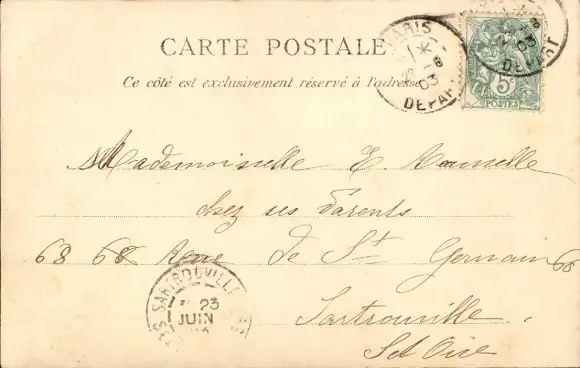 CARTE POSTALE
Ce côté est exclusivement réservé à l'adresse
PARIS
DEPART
03
DEPART
03
5c
POSTES
Mademoiselle E.
chez ses Parents
68 68 Rue de St Germain 68
Sartrouville
S et Oise
SARTROUVILLE
23
JUIN